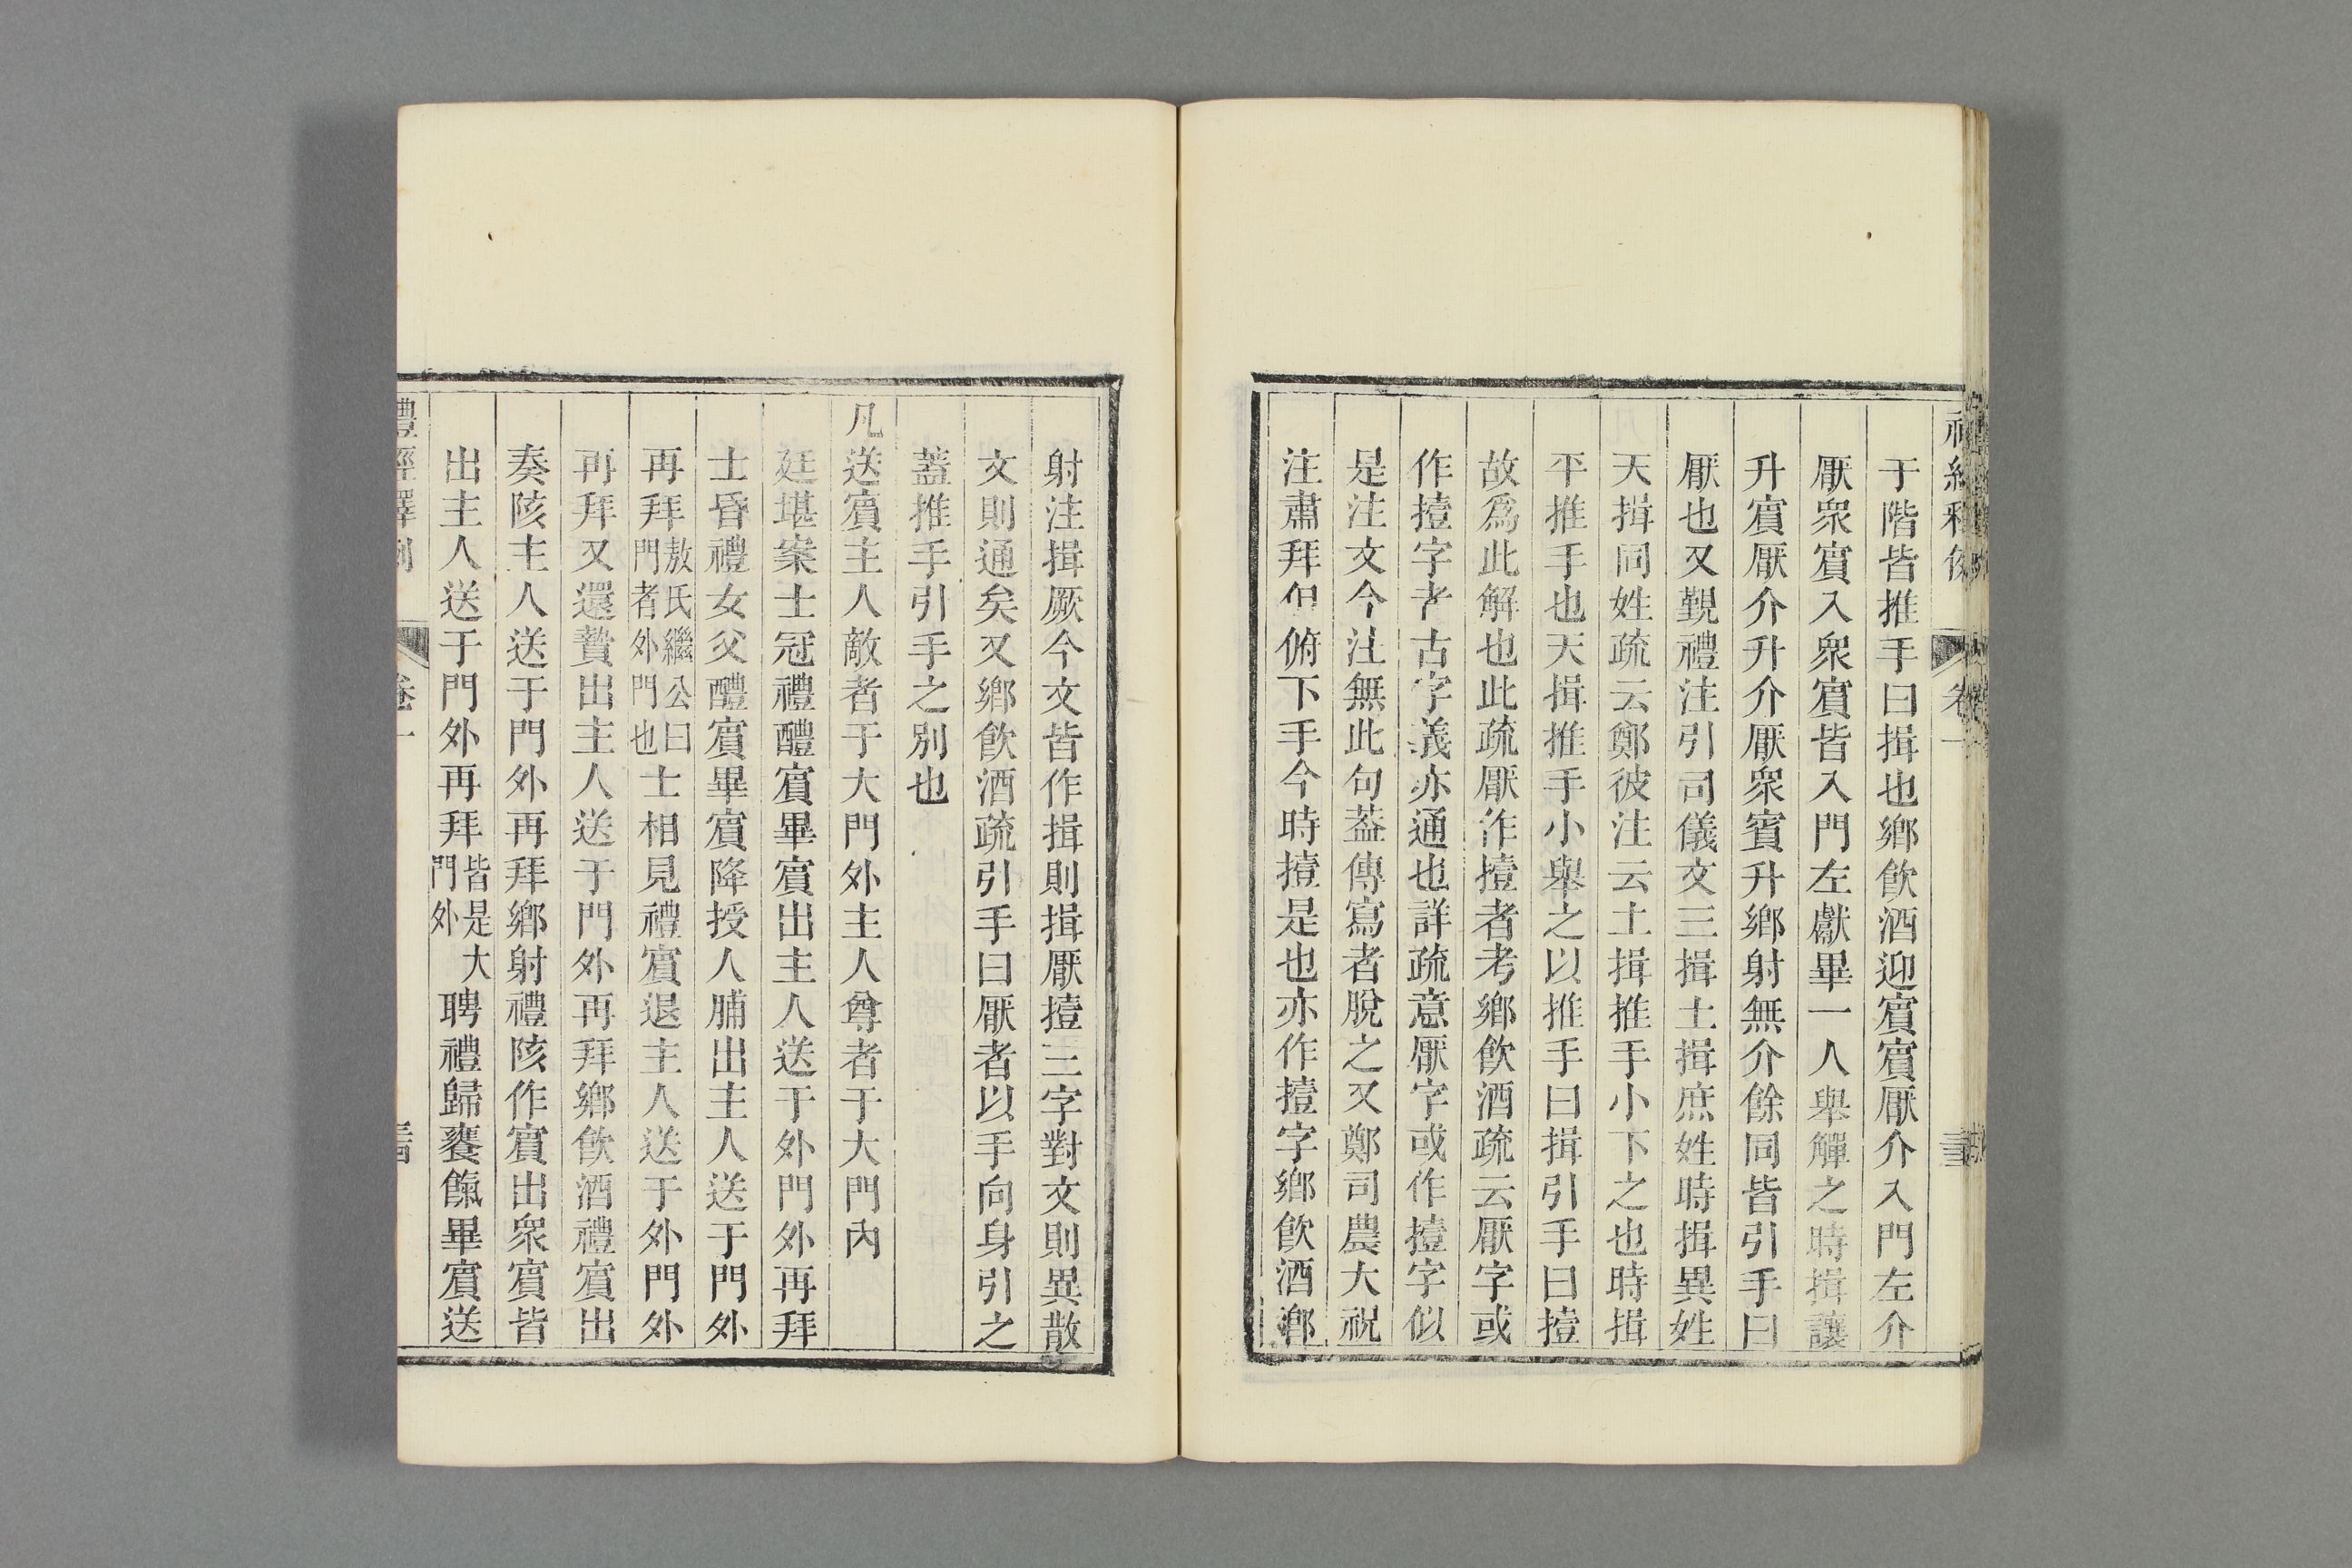 于階皆推手曰揖也鄉飲酒迎賔賔厭介入門左介
厭衆賔入衆賔皆入門左獻畢一人舉觶之時揖讓
升賔厭介升介厭衆賓升鄉射無介餘同皆引手曰
厭也又覲禮注引司儀文三揖土揖庶姓時揖異姓
天揖同姓疏云鄭彼注云土揖推手小下之也時揖
平推手也天揖推手小舉之以推手曰揖引手曰撎
故爲此解也此疏厭作撎者考鄉飲酒疏云厭字或
作撎字者古字義亦通也詳疏意厭字或作撎字似
是注文今注無此句葢傳寫者脫之又鄭司農大祝
注肅拜但俯下手今時撎是也亦作撎字鄉飲酒鄉
射注揖厭今文皆作揖則揖厭撎三字對文則異散
文則通矣又鄉飲酒疏引手曰厭者以手向身引之
葢推手引手之別也
凡送賔主人敵者于大門外主人尊者于大門內
廷堪案士冠禮醴賔畢賔出主人送于外門外再拜
士昏禮女父醴賔畢賔降授人脯出主人送于門外
再拜敖氏繼公曰門者外門也士相見禮賔退主人送于外門外
再拜又還贄出主人送于門外再拜鄉飲酒禮賔出
奏陔主人送于門外再拜鄉射禮陔作賔出衆賔皆
出主人送于門外再拜皆是大門外聘禮歸饔餼畢賔送
禮經釋例 卷一